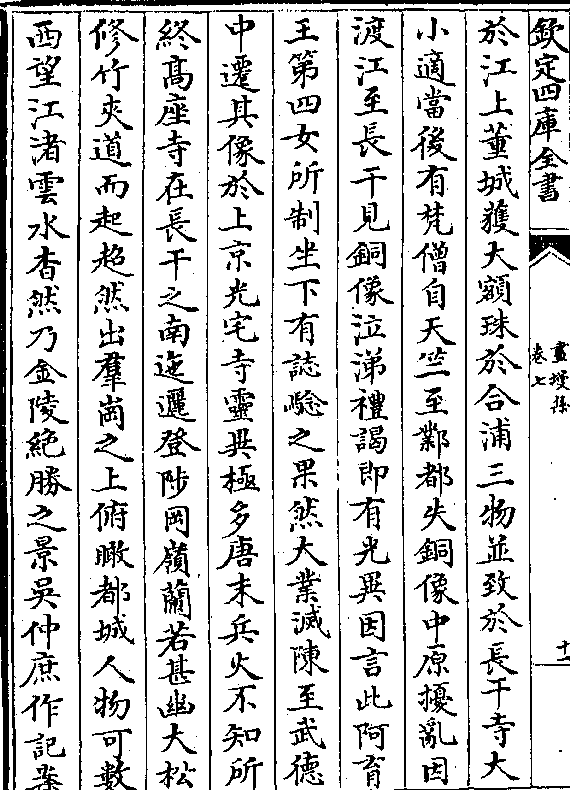 欽定四庫全書
畫墁集
卷七
十一
於江上董城獲大額珠於合浦三物並致於長干寺大
小適當後有梵僧自天竺至鄴都失銅像中原擾亂因
渡江至長干見銅像泣涕禮謁即有光異因言此阿育
王第四女所制坐下有誌驗之果然大業滅陳至武德
中遷其像於上京光宅寺靈異極多唐末兵火不知所
終髙座寺在長干之南迤邐登陟岡嶺蘭若甚幽大松
修竹夾道而起超然出羣崗之上俯瞰都城人物可數
西望江渚雲水杳然乃金陵絶勝之景吴仲庶作記